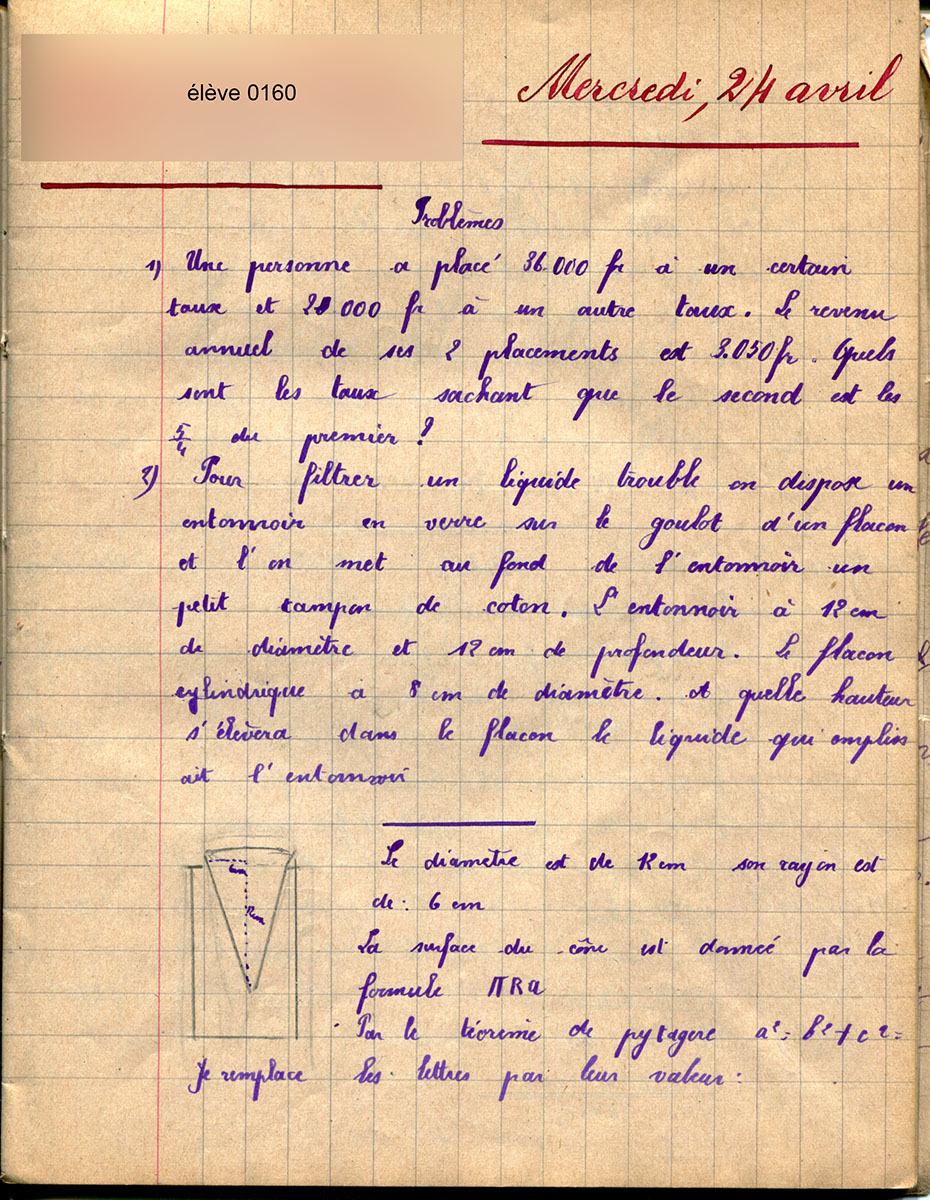 élève 0160
Mercredi, 24 avril
Problèmes
1) Une personne a placé 36.000 fr à un certain
taux et 20 000 fr à un autre taux. Le revenu
annuel de ses 2 placements est 3.050 fr. Quels
sont les taux sachant que le second est les
5/4 du premier ?
2) Pour filtrer un liquide trouble on dispose un
entonnoir en verre sur le goulot d'un flacon
et l'on met au fond de l'entonnoir un
petit tampon de coton. L'entonnoir à 12 cm
de diamètre et 12 cm de profondeur. Le flacon
cylindrique a 8 cm de diamètre. A quelle hauteur
s'élèvera dans le flacon le liquide qui emplis
ait l'entonnoir
Le diamètre est de 12 cm son rayon est
de : 6 cm
6cm
12cm
La surface du cône est donnée par la
formule πRa
Par le téorème de pytagore a² = b² + c² =
Je remplace les lettres par leur valeur :